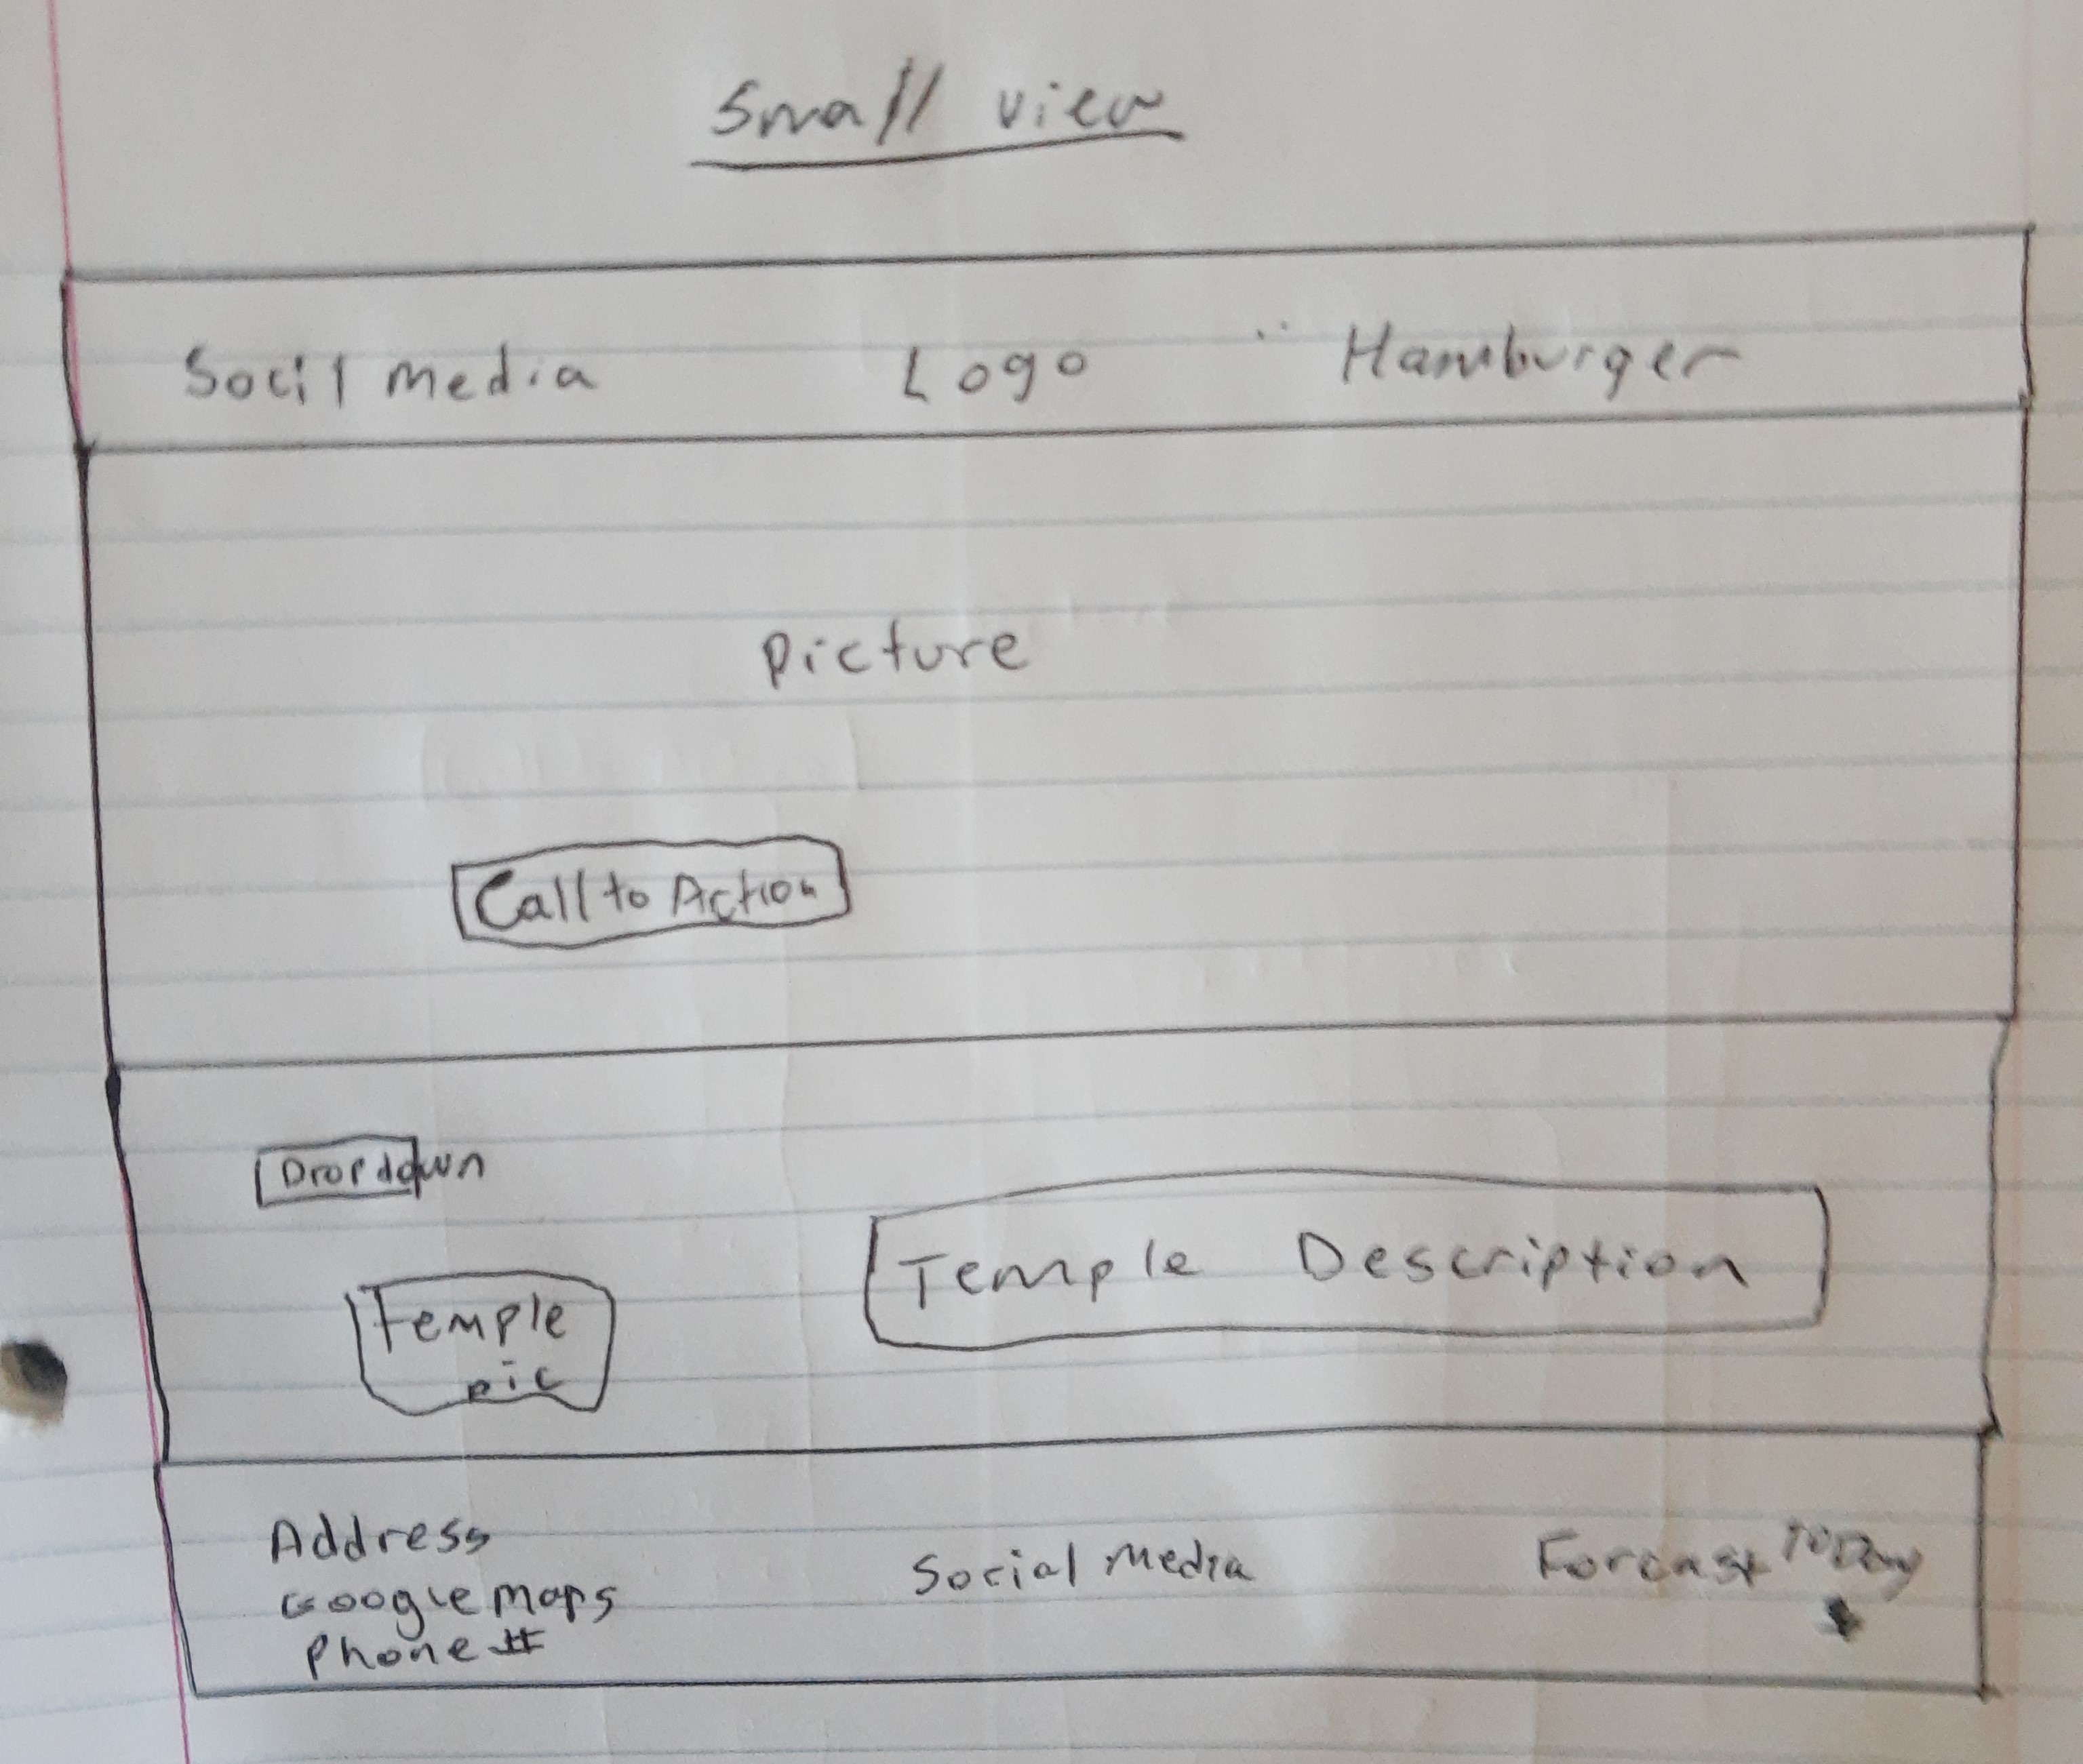 Small view
Socil media Logo Hamburger
picture
Call to Action
Dropdown
Temple Description
Temple
pic
Address
Google maps
Phone #
Social Media
Forcast